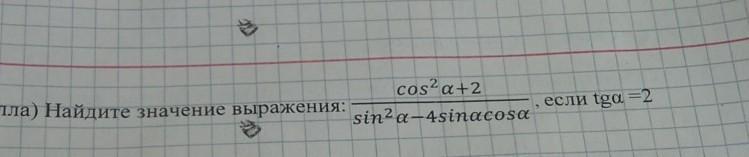 лла) Найдите значение выражения: (cos²α+2)/(sin²α−4sinαcosα), если tgα=2